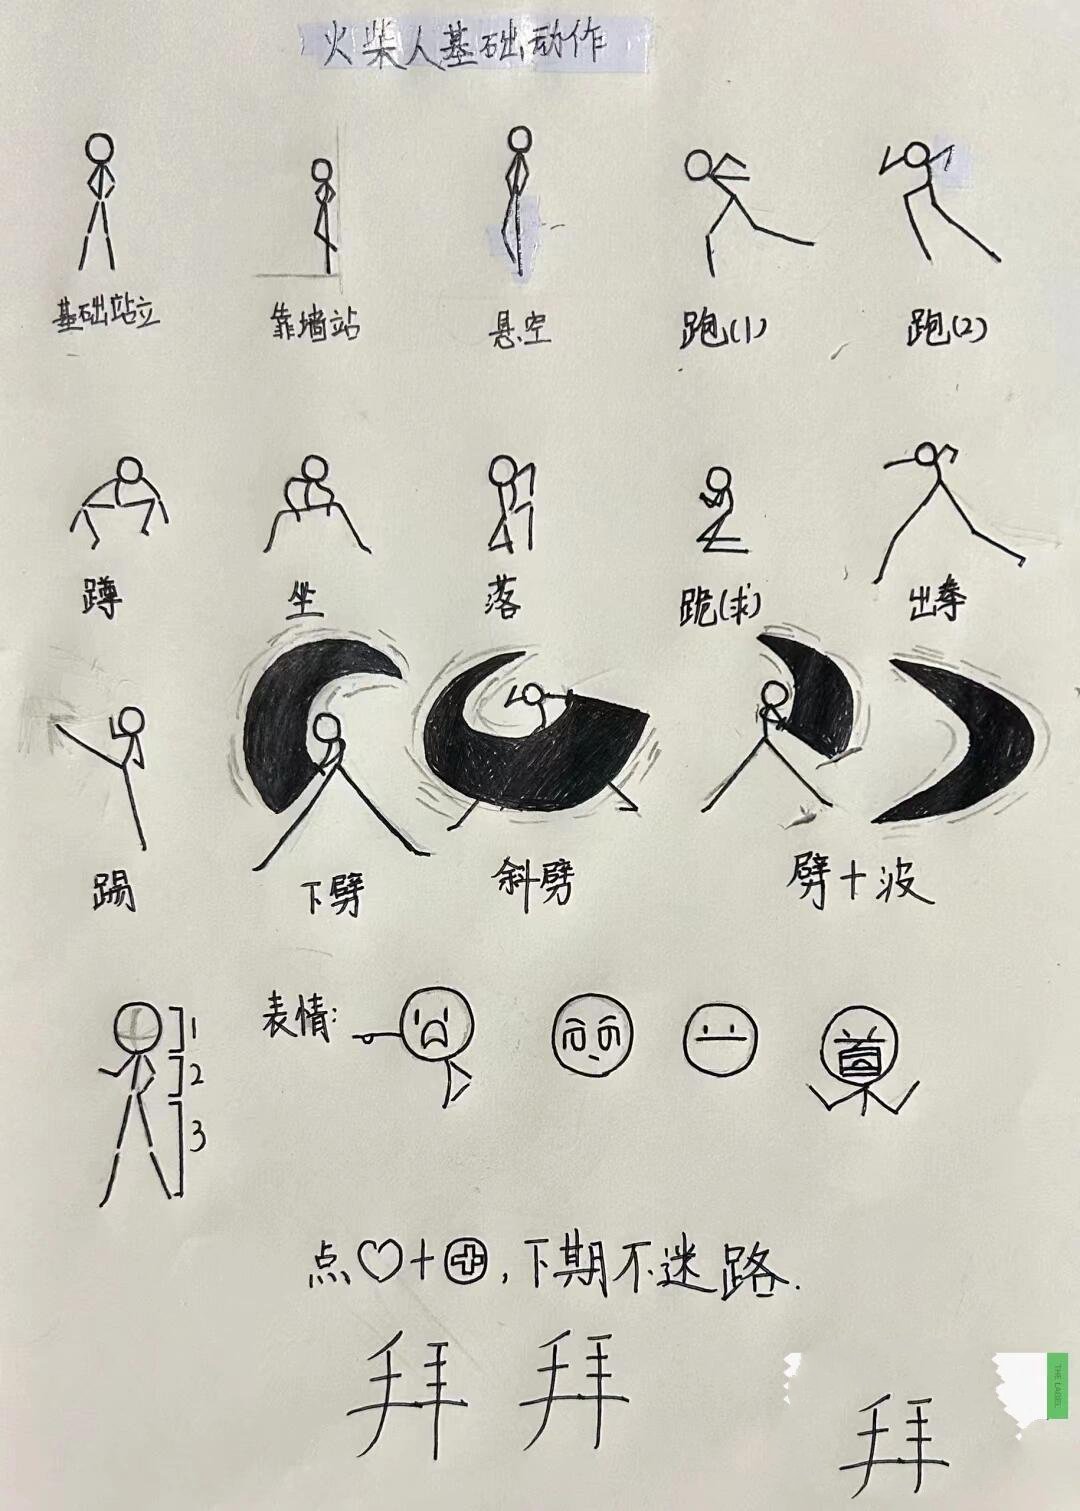 火柴人基础动作
基础站立 靠墙站 悬空 跑(1) 跑(2)
蹲 坐 落 跪(求) 出拳
踢 下劈 斜劈 劈+波
表情:
1
2
3
点♡+⊕,下期不迷路.
拜 拜
拜
THE LABEL